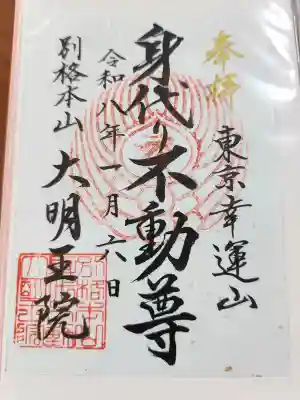 奉拝
東京幸運山
身代り不動尊
令和八年一月六日
別格本山 大明王院